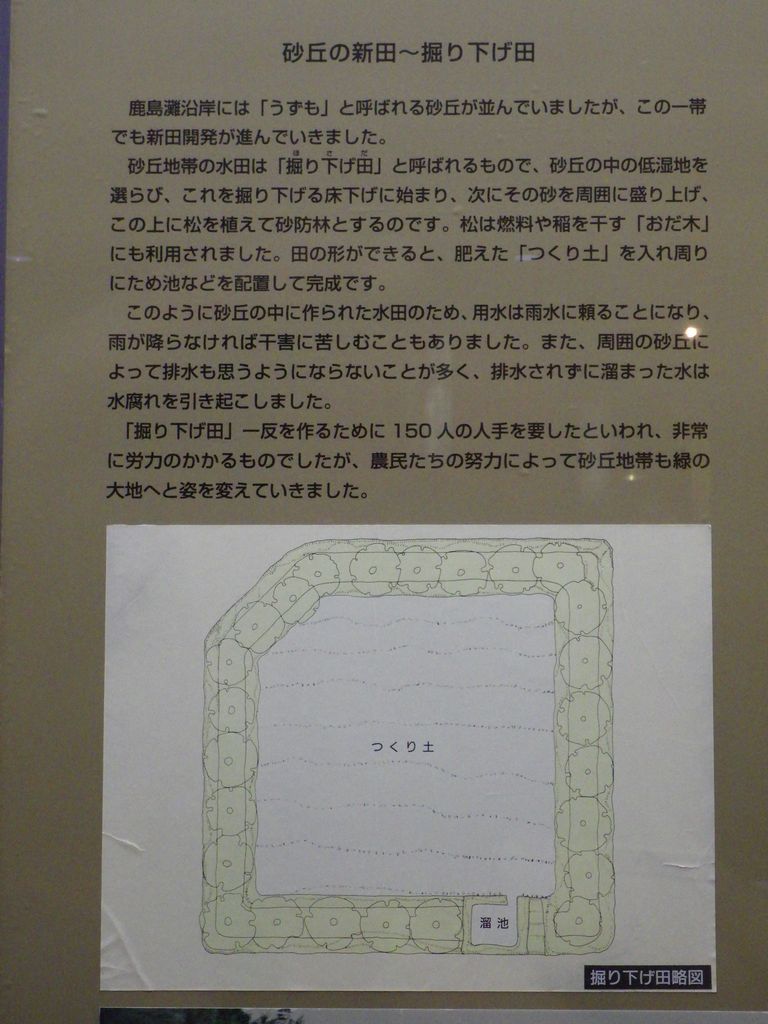 砂丘の新田～掘り下げ田
鹿島灘沿岸には「うずも」と呼ばれる砂丘が並んでいましたが、この一帯
でも新田開発が進んでいきました。
砂丘地帯の水田は「掘り下げ田」と呼ばれるもので、砂丘の中の低湿地を
選らび、これを掘り下げる床下げに始まり、次にその砂を周囲に盛り上げ、
この上に松を植えて砂防林とするのです。松は燃料や稲を干す「おだ木」
にも利用されました。田の形ができると、肥えた「つくり土」を入れ周り
にため池などを配置して完成です。
このように砂丘の中に作られた水田のため、用水は雨水に頼ることになり、
雨が降らなければ干害に苦しむこともありました。また、周囲の砂丘に
よって排水も思うようにならないことが多く、排水されずに溜まった水は
水腐れを引き起こしました。
「掘り下げ田」一反を作るために 150 人の人手を要したといわれ、非常
に労力のかかるものでしたが、農民たちの努力によって砂丘地帯も緑の
大地へと姿を変えていきました。
つくり土
溜池
掘り下げ田略図